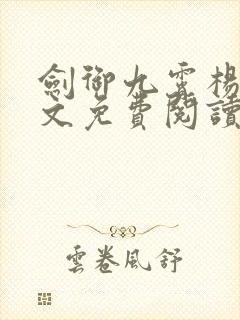 劍御九霄楊
文免費閱讀
雲卷風舒